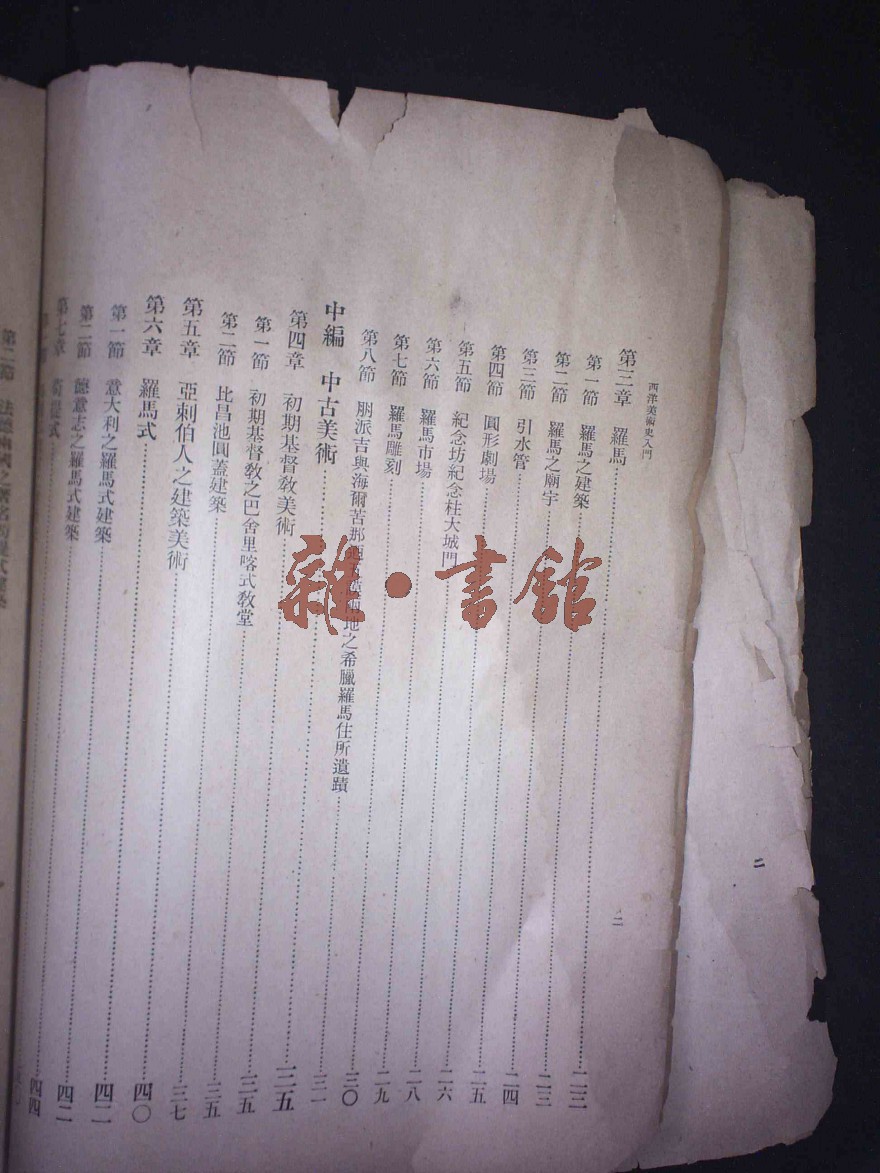 西洋美術史入門
二
第三章 羅馬……二三
第一節 羅馬之建築……二三
第二節 羅馬之廟宇……二四
第三節 引水管……二五
第四節 圓形劇場……二六
第五節 紀念坊紀念柱大城門……二八
第六節 羅馬市場……二九
第七節 羅馬雕刻……三〇
第八節 朋派吉與海爾苦那 地之希臘羅馬住所遺蹟……三一
中編 中古美術……三五
第四章 初期基督教美術……三五
第一節 初期基督教之巴舍里喀式教堂……三五
第二節 比昌池圓蓋建築……三七
第五章 亞刺伯人之建築美術……四〇
第六章 羅馬式……四二
第一節 意大利之羅馬式建築……四二
第二節 德意志之羅馬式建築……四四
第七章
第二節
二
雜·書館